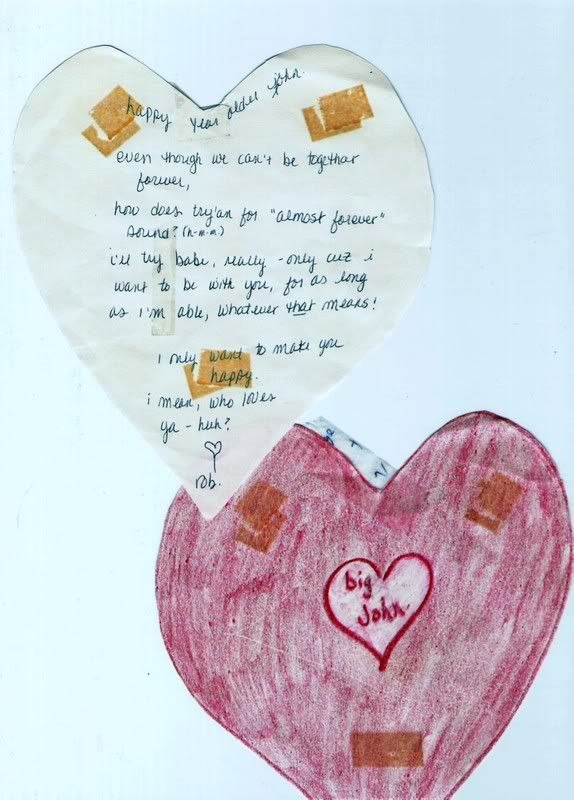 happy year older john.
even though we can't be togethar
forever,
how does try'an for "almost forever"
sound? (h-m-m)
i'll try babe, really - only cuz i
want to be with you, for as long
as i'm able, whatever that means!
i only want to make you
happy.
i mean, who loves
ya - huh?
rob.
big
John.